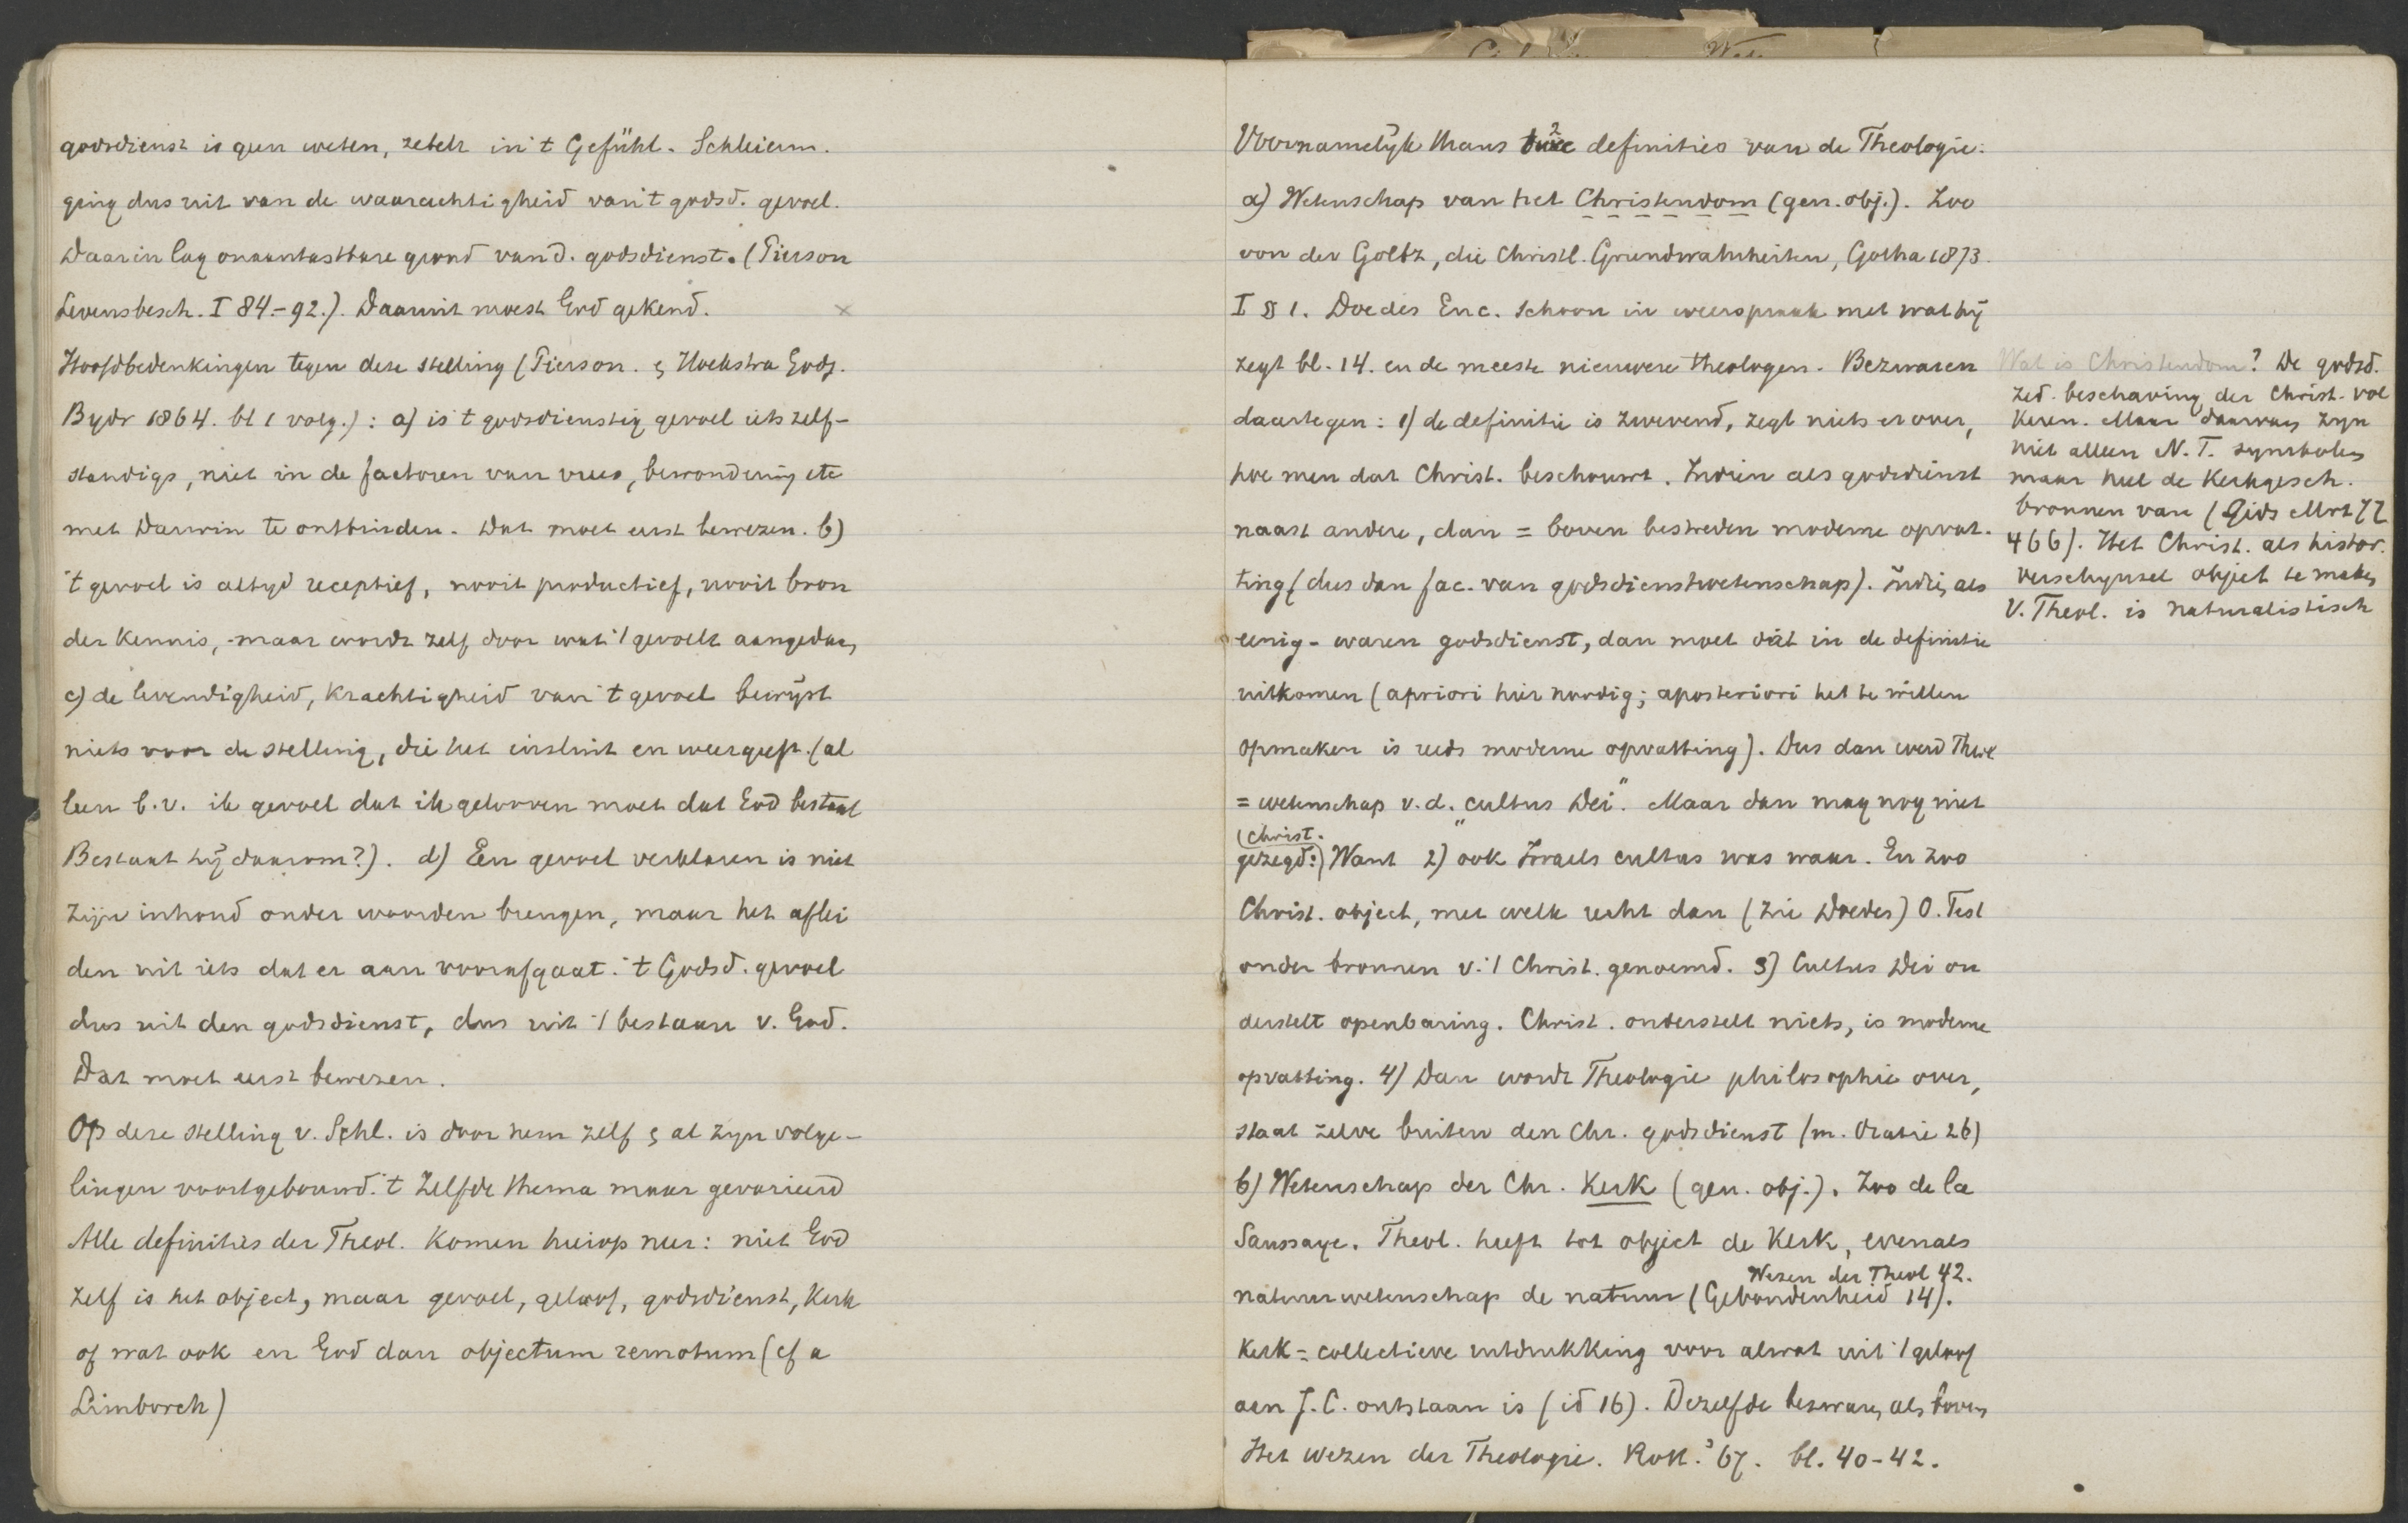 godsdienst is geen weten, zetelt in 't Gefühl. Schleierm.
ging dus uit van de waarachtigheid van 't godsd. gevoel.
Daarin lag onaantastbare grond van d. godsdienst. (Pierson
Levensbesch. I 84-92.). Daaruit moest God gekend. ×
Hoofdbedenkingen tegen deze stelling (Pierson. & Hoekstra Godg.
Bydr 1864. bl 1 volg.): a) is 't godsdienstig gevoel iets zelf-
standigs, niet in de factoren van vrees, bewondering etc
met Darwin te ontbinden. Dat moet eerst bewezen. b)
't gevoel is altyd receptief, nooit productief, nooit bron
der kennis, maar wordt zelf door wat 't gevoelt aangedaan,
c) de levendigheid, krachtigheid van 't gevoel bewijst
niets voor de stelling, die het insluit en weergeeft. (al
leen b.v. ik gevoel dat ik gelooven moet dat God bestaat
Bestaat hij daarom?). d) Een gevoel verklaren is niet
zijn inhoud onder woorden brengen, maar het aflei
den uit iets dat er aan voorafgaat. 't Godsd. gevoel
dus uit den godsdienst, dus uit 't bestaan v. God.
Dat moet eerst bewezen.
Op deze stelling v. Schl. is door hem zelf & al zyn volge-
lingen voortgebouwd. 't Zelfde thema maar gevarieerd
Alle definities der Theol. komen hierop neer: niet God
zelf is het object, maar gevoel, geloof, godsdienst, Kerk
of wat ook en God dan objectum remotum (cf a
Limborch)
Voornamelyk thans 2 definities van de Theologie:
a) Wetenschap van het Christendom (gen. obj.). Zoo
von der Goltz, die Christl. Grundwahrheiten, Gotha 1873.
I § 1. Doedes Enc. schoon in weerspraak met wat hij
zegt bl. 14. en de meeste nieuwere theologen. Bezwaren
daartegen: 1) de definitie is zwevend, zegt niets er over,
hoe men dat Christ. beschouwt. Indien als godsdienst
naast andere, dan = boven bestreden moderne opvat-
ting (dus dan fac. van godsdienstwetenschap). Indien als
eenig-waren godsdienst, dan moet dát in de definitie
uitkomen (apriori hier noodig; aposteriori het te willen
opmaken is reeds moderne opvatting). Dus dan werd Theol
= wetenschap v. d. „cultus Dei". Maar dan mag nog niet
(Christ.
gezegd:) Want 2) ook Israels cultus was waar. En zoo
Christ. object, met welk recht dan (zie Doedes) O. Test
onder bronnen v. 't Christ. genoemd. 3) Cultus Dei on
derstelt openbaring. Christ. onderstelt niets, is moderne
opvatting. 4) Dan wordt Theologie philosophie over,
staat zelve buiten den Chr. godsdienst (m. Oratie 26)
b) Wetenschap der Chr. Kerk (gen. obj.). Zoo de la
Saussaye. Theol. heeft tot object de Kerk, evenals
Wezen der Theol 42.
natuurwetenschap de natuur (Gebondenheid 14).
Kerk = collectieve uitdrukking voor alwat uit 't geloof
aan J. C. ontstaan is (id 16). Dezelfde bezwaren als boven
Het wezen der Theologie. Rott. '67. bl. 40-42.
Wat is Christendom? De godsd.
zed. beschaving der Christ. vol
keren. Maar daarvan zyn
niet alleen N. T. symbolen
maar heel de Kerkgesch.
bronnen van (Gids Mrt 77
466). Het Christ. als histor.
verschynsel object te maken
v. Theol. is naturalistisch